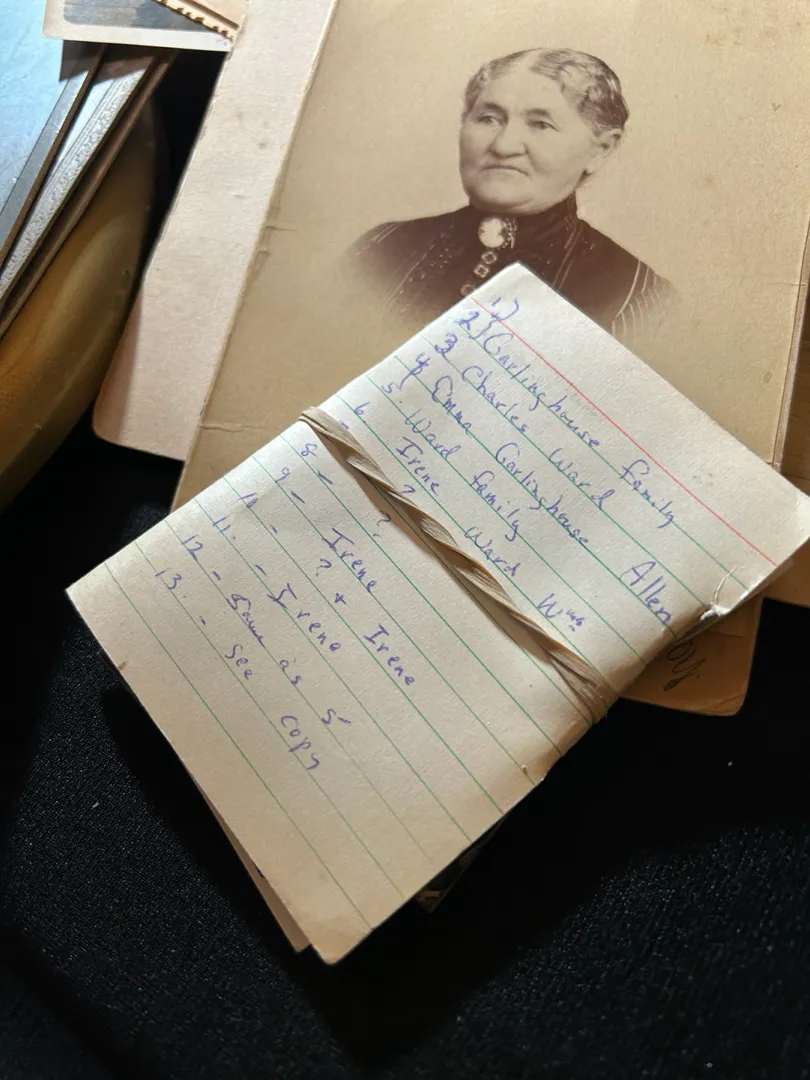 1)
2) Garlinghouse family
3 Charles Ward
4 Emma Garlinghouse Allen
5. Ward family
6 Irene Ward Wms
- ?
8 - ?
9 - Irene
11 - ? + Irene
11. - Irene
12 - Same as 5
13. - See copy